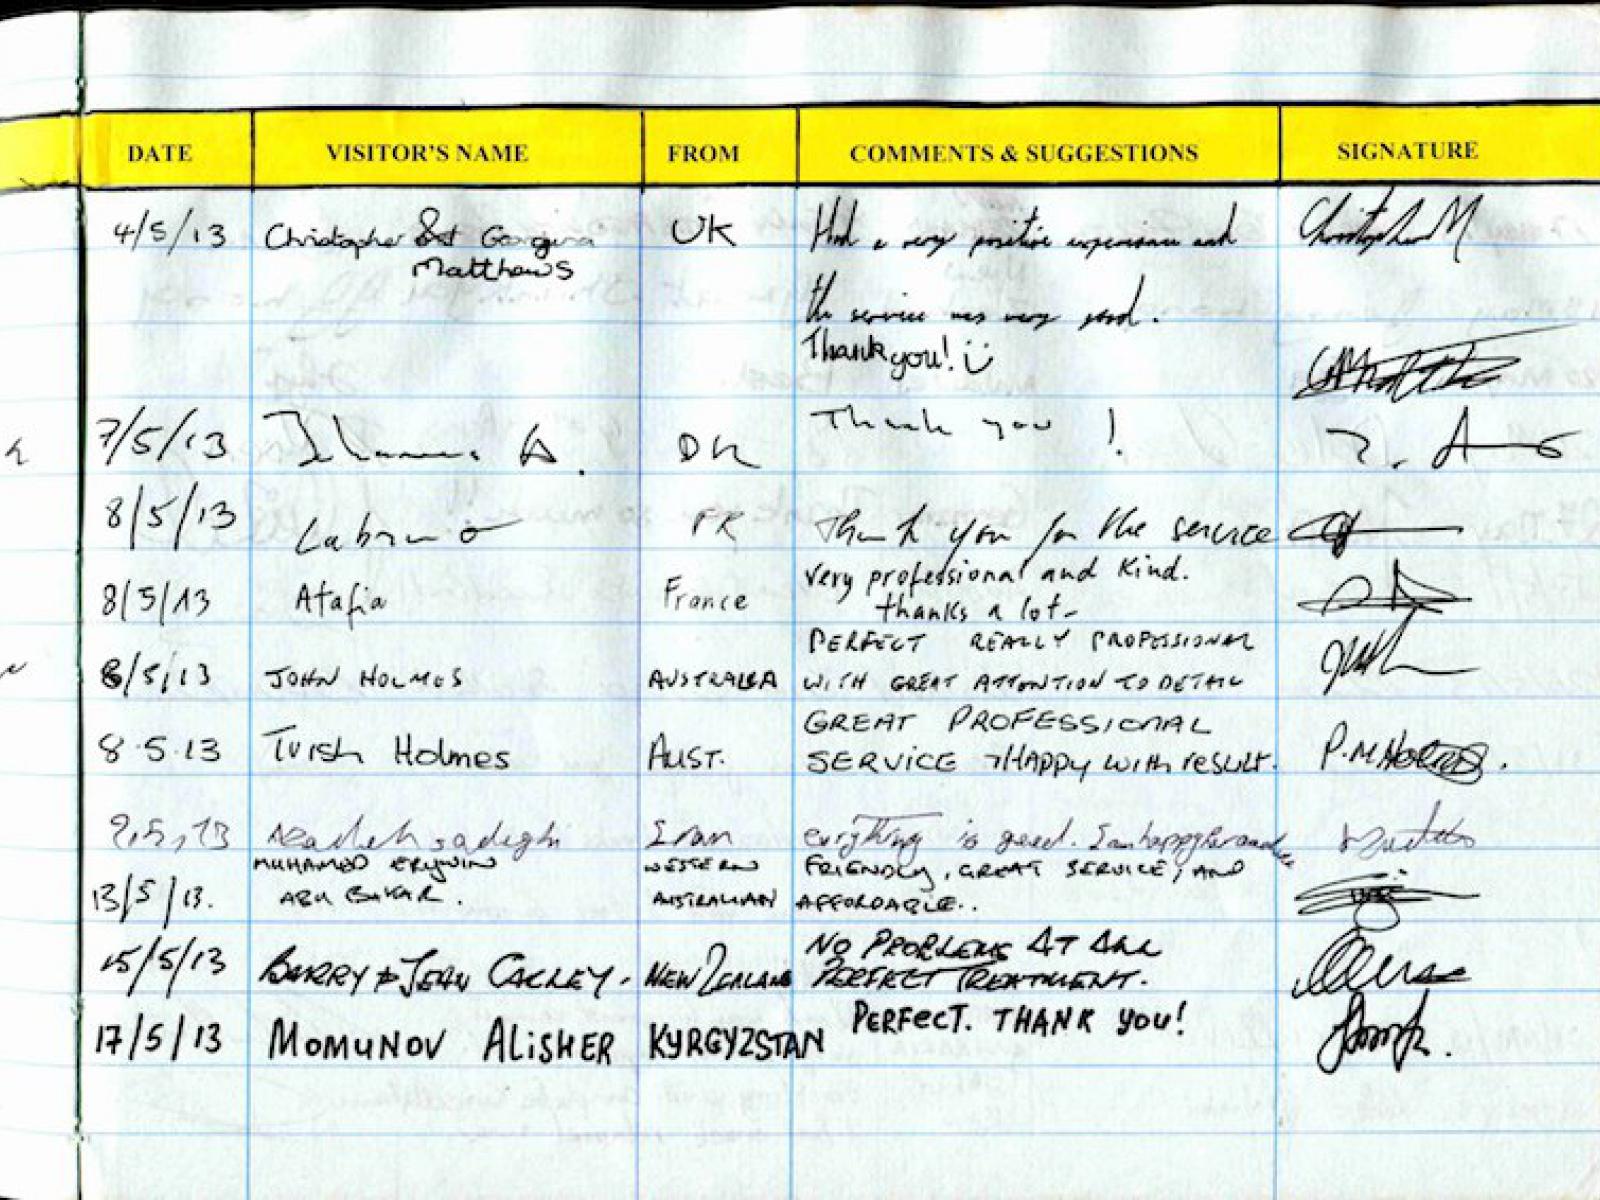 DATE VISITOR'S NAME FROM COMMENTS & SUGGESTIONS SIGNATURE
4/5/13 Christopher & Georgina UK Had a very positive experience and Christopher M
Matthews
the service was very good.
Thank you!
7/5/13 DK Thank you !
8/5/13 FR Thank you for the service
very professional and Kind.
8/5/13 Atafia France thanks a lot-
PERFECT REALLY PROFESSIONAL
8/5/13 JOHN HOLMES AUSTRALIA WITH GREAT ATTENTION TO DETAIL
GREAT PROFESSIONAL
8.5.13 Trish Holmes AUST. SERVICE HAPPY with result. P.M Holmes.
Azadeh sadeghi Iran everything is good. I am happy
MUHAMED WESTERN FRIENDLY, GREAT SERVICE, AND
13/5/13. ABU BAKAR. AUSTRALIAN AFFORDABLE..
NO PROBLEMS AT ALL
15/5/13 BARRY & JEAN NEW ZEALAND PERFECT TREATMENT.
PERFECT. THANK YOU!
17/5/13 MOMUNOV ALISHER KYRGYZSTAN